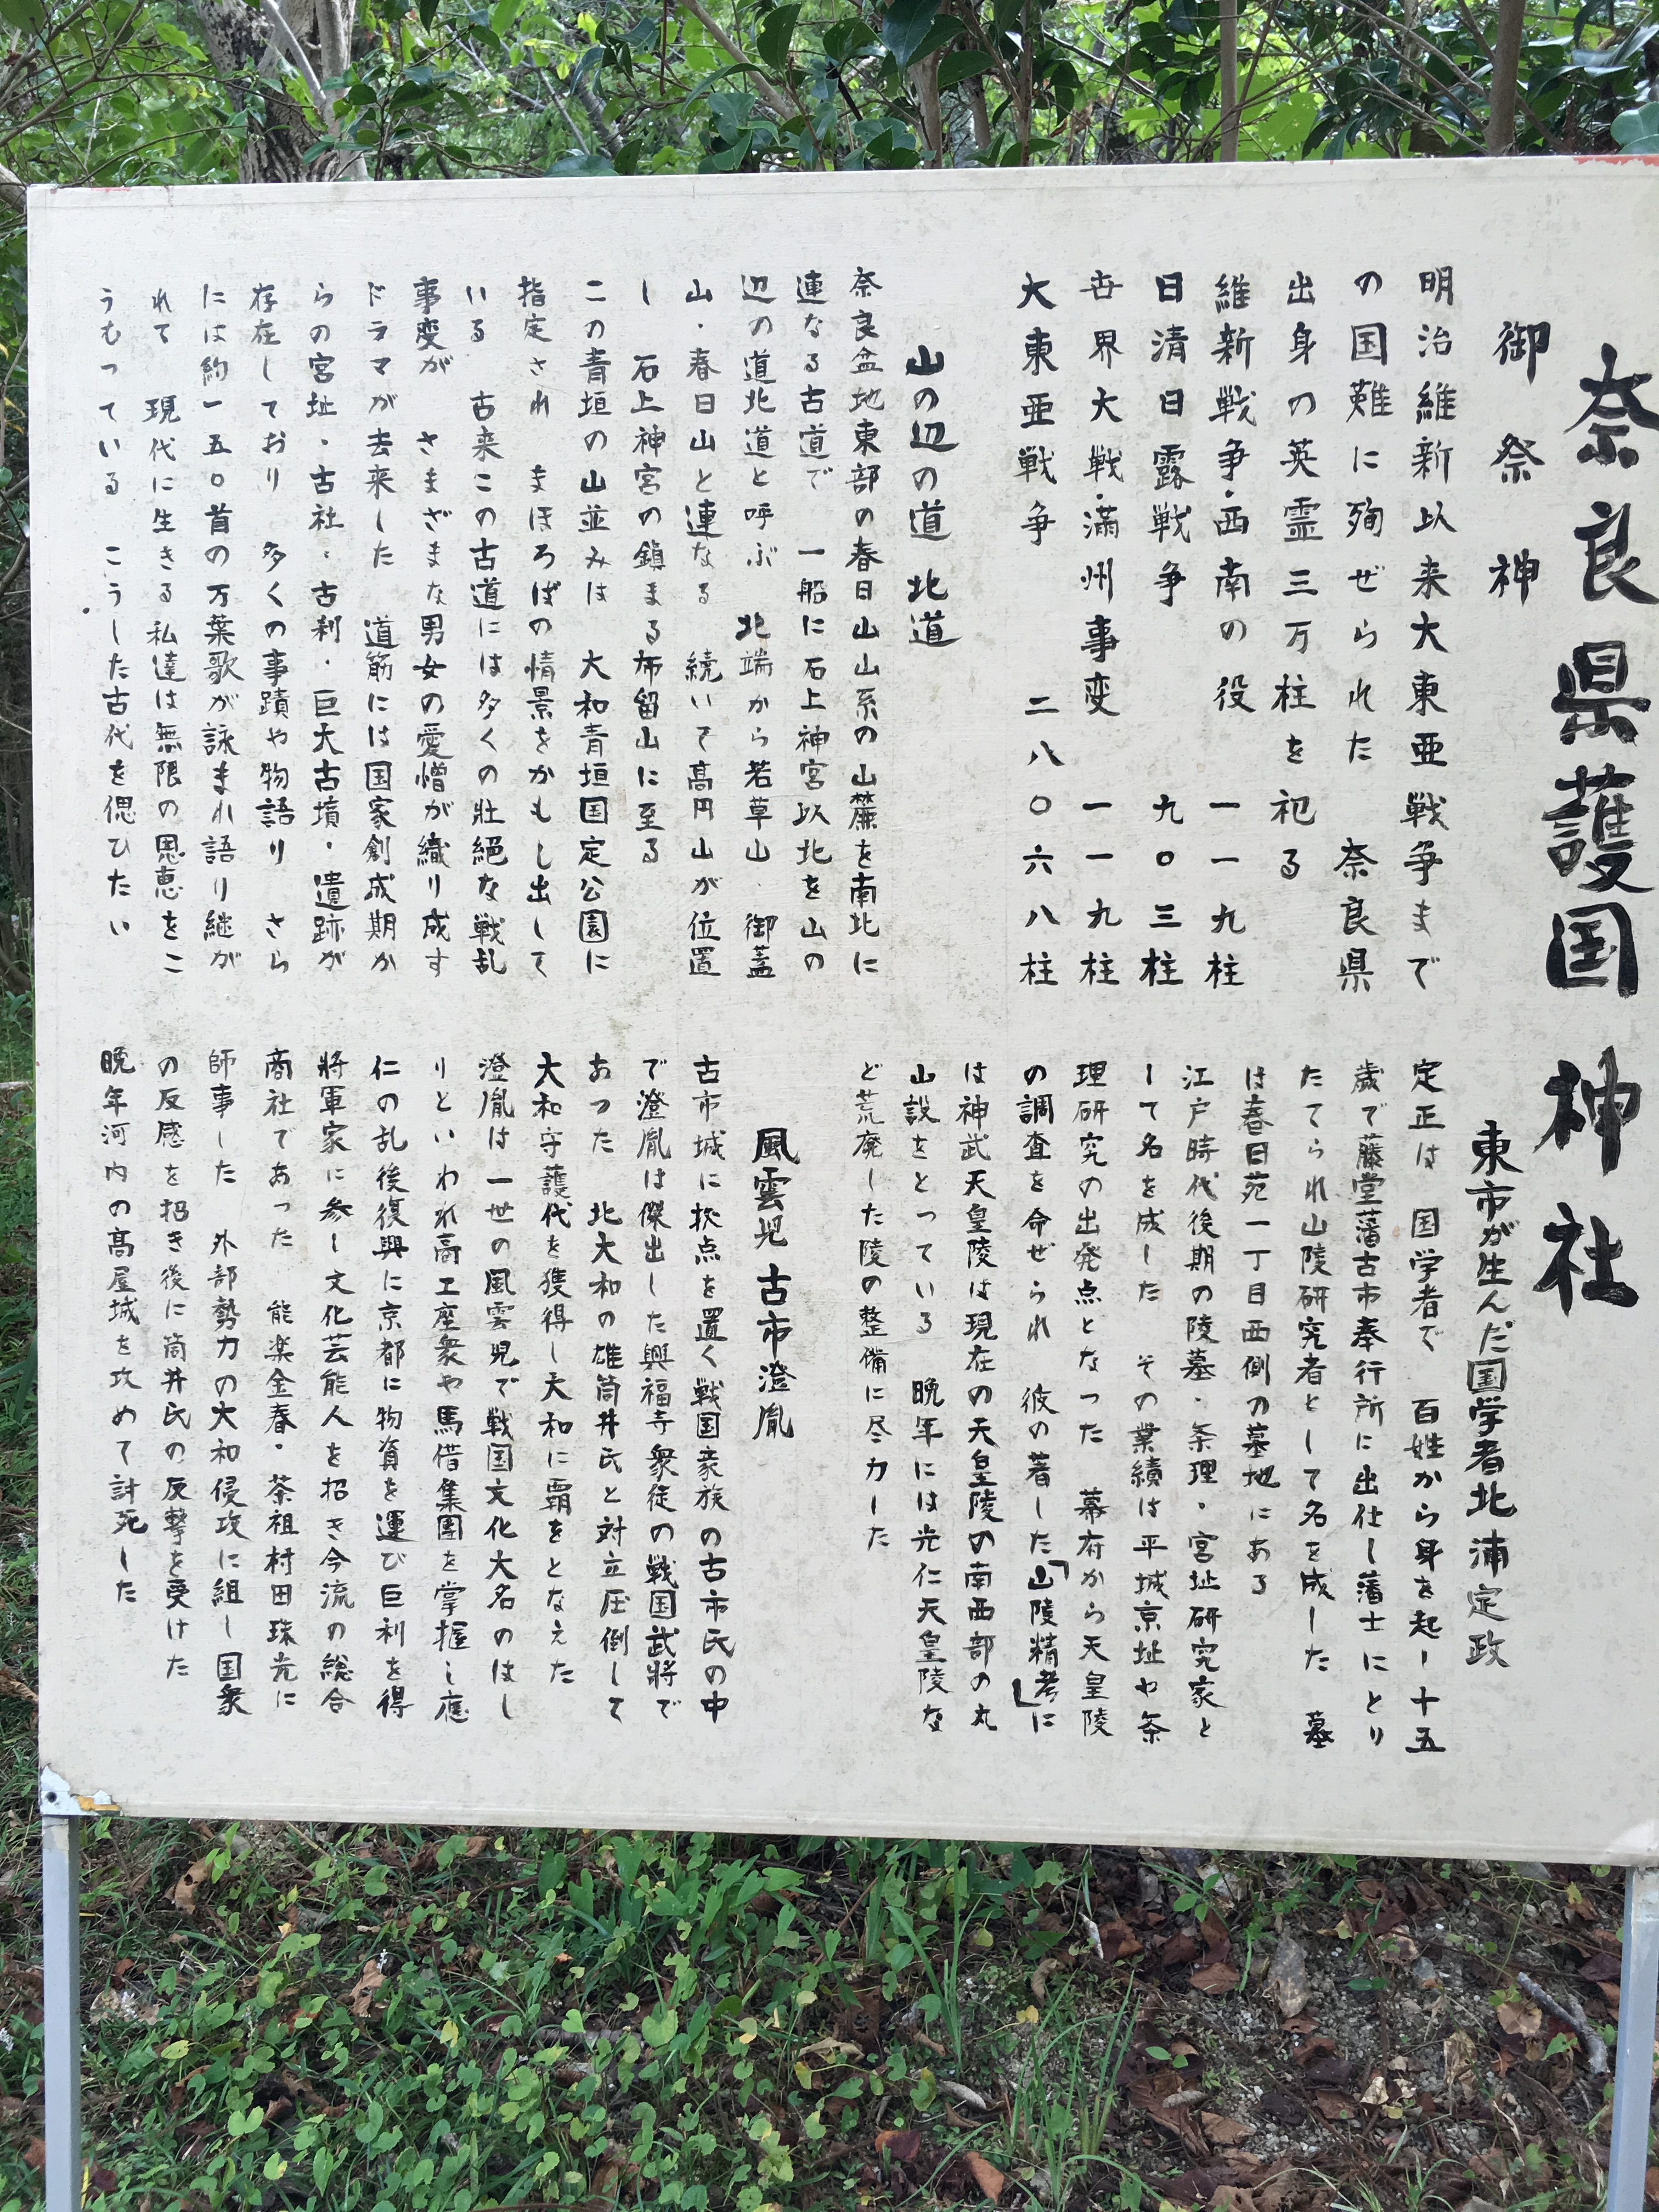 奈良県護国神社
御祭神
明治維新以来大東亜戦争まで
の国難に殉ぜられた 奈良県
出身の英霊三万柱を祀る
維新戦争・西南の役 一一九柱
日清日露戦争 九〇三柱
世界大戦・満州事変 一一九柱
大東亜戦争 二八〇六八柱
山の辺の道 北道
奈良盆地東部の春日山山系の山麓を南北に
連なる古道で 一船に石上神宮以北を山の
辺の道北道と呼ぶ 北端から若草山 御蓋
山・春日山と連なる 続いて高円山が位置
し 石上神宮の鎮まる布留山に至る
この青垣の山並みは 大和青垣国定公園に
指定され まほろばの情景をかもし出して
いる 古来この古道には多くの壮絶な戦乱
事変が さまざまな男女の愛憎が織り成す
ドラマが去来した 道筋には国家創成期か
らの宮址・古社・古刹・巨大古墳・遺跡が
存在しており 多くの事蹟や物語り さら
には約一五〇首の万葉歌が詠まれ語り継が
れて 現代に生きる私達は無限の恩恵をこ
うむっている こうした古代を偲ひたい
東市が生んだ国学者北浦定政
定正は 国学者で 百姓から身を起し十五
歳で藤堂藩古市奉行所に出仕し藩士にとり
たてられ山陵研究者として名を成した 墓
は春日苑一丁目西側の墓地にある
江戸時代後期の陵墓・条理・宮址研究家と
して名を成した その業績は平城京址や条
理研究の出発点となった 幕府から天皇陵
の調査を命ぜられ 彼の著した「山陵精考」に
は神武天皇陵は現在の天皇陵の南西部の丸
山説をとっている 晩年には光仁天皇陵な
ど荒廃した陵の整備に尽力した
風雲児 古市澄胤
古市城に拠点を置く戦国豪族の古市氏の中
で澄胤は傑出した興福寺衆徒の戦国武将で
あった 北大和の雄筒井氏と対立圧倒して
大和守護代を獲得し大和に覇をとなえた
澄胤は一世の風雲児で戦国文化大名のはし
りといわれ商工座衆や馬借集団を掌握し応
仁の乱後復興に京都に物資を運び巨利を得
将軍家に参し文化芸能人を招き今流の総合
商社であった 能楽金春・茶祖村田珠光に
師事した 外部勢力の大和侵攻に組し国衆
の反感を招き後に筒井氏の反撃を受けた
晩年河内の高屋城を攻めて討死した